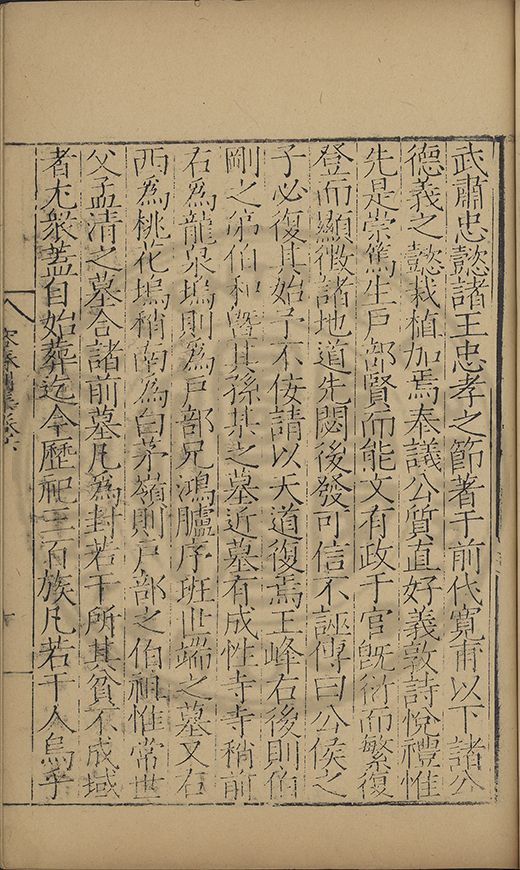 武肅忠懿諸王忠孝之節著于前代寬甫以下諸公
德義之懿栽植加焉奉議公質直好義敦詩悅禮惟
先是崇篤生戶部賢而能文有政于官旣衍而繁復
登而顯徵諸地道先閟後發可信不誣傳曰公侯之
子必復其始予不佞請以天道復焉王峰右後則伯
剛之弟伯和曁其孫某之墓近墓有成性寺寺稍前
右爲龍泉塢則爲戶部兄鴻臚序班世端之墓又右
西爲桃花塢稍南爲白茅嶺則戶部之伯祖惟常世
父孟清之墓合諸前墓凡爲封若干所其貧不成域
者尤衆蓋自始葬迄今歷祀三百族凡若干人烏乎